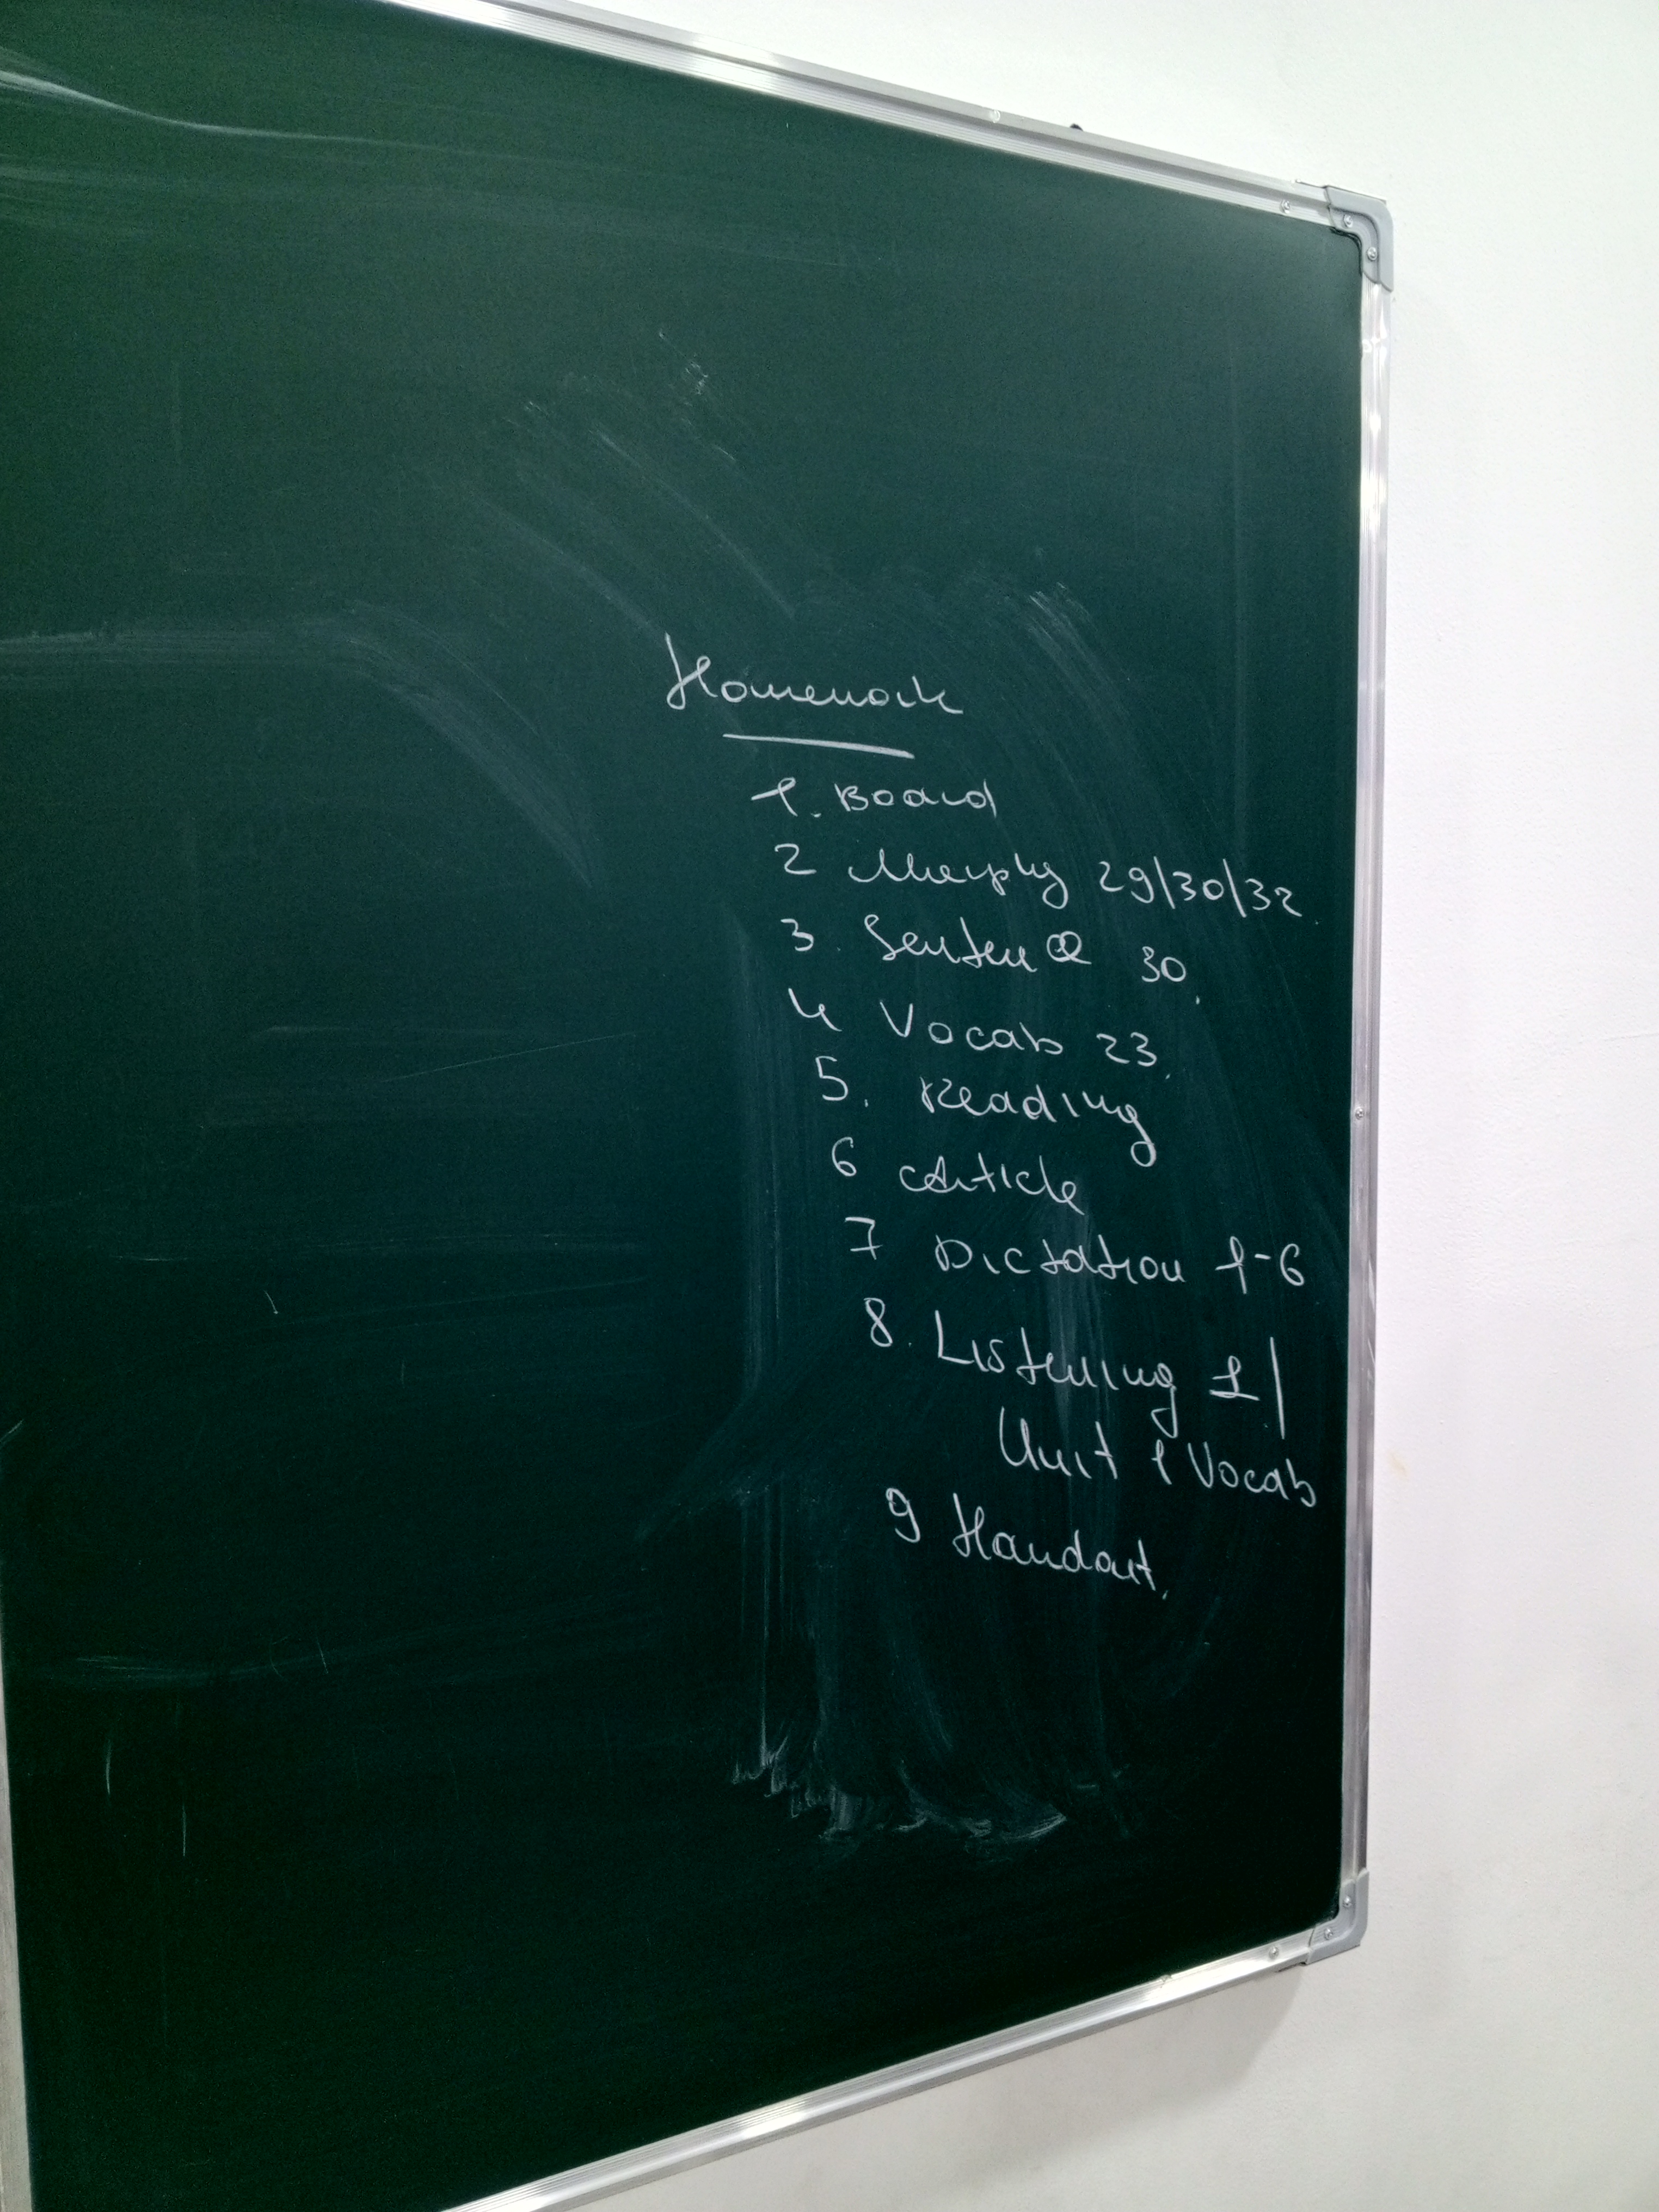 Homework
1. Board
2 Murphy 29/30/32.
3. Sentence 30.
4 Vocab 23.
5. Reading
6 Article
7 Dictation 1-6
8. Listening 1/
Unit 1 Vocab
9 Handout.